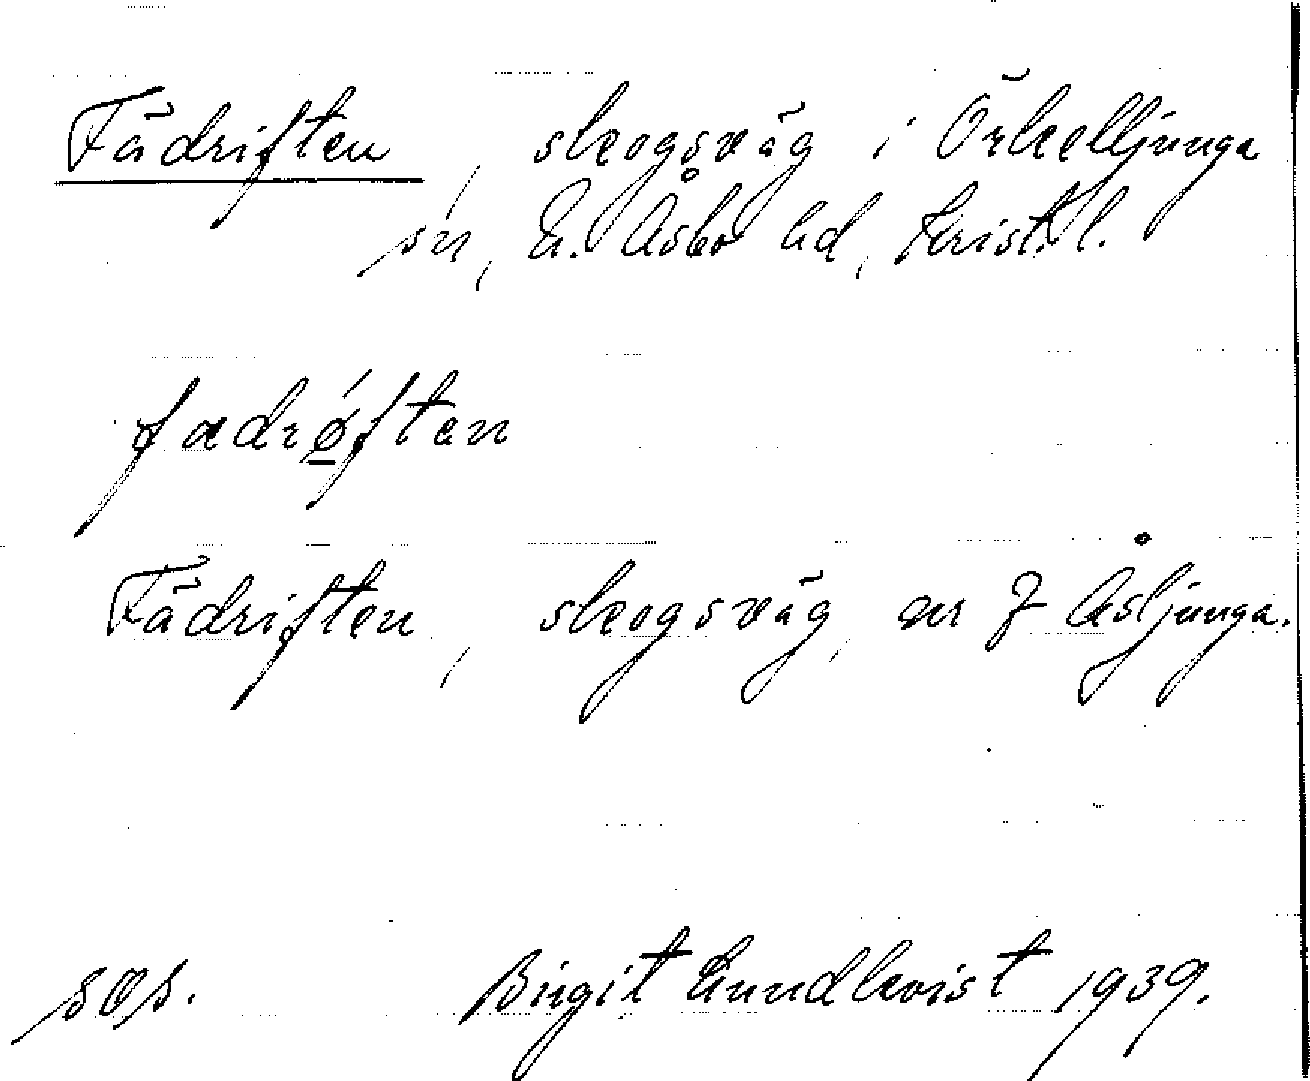 Fädriften, skogsväg i Örkelljunga
sn, N. Åsbo hd, Krist. l.
fadrǿften
Fädriften, skogsväg, nr 7 Åsljunga.
sos. Birgit Lundkvist 1939.